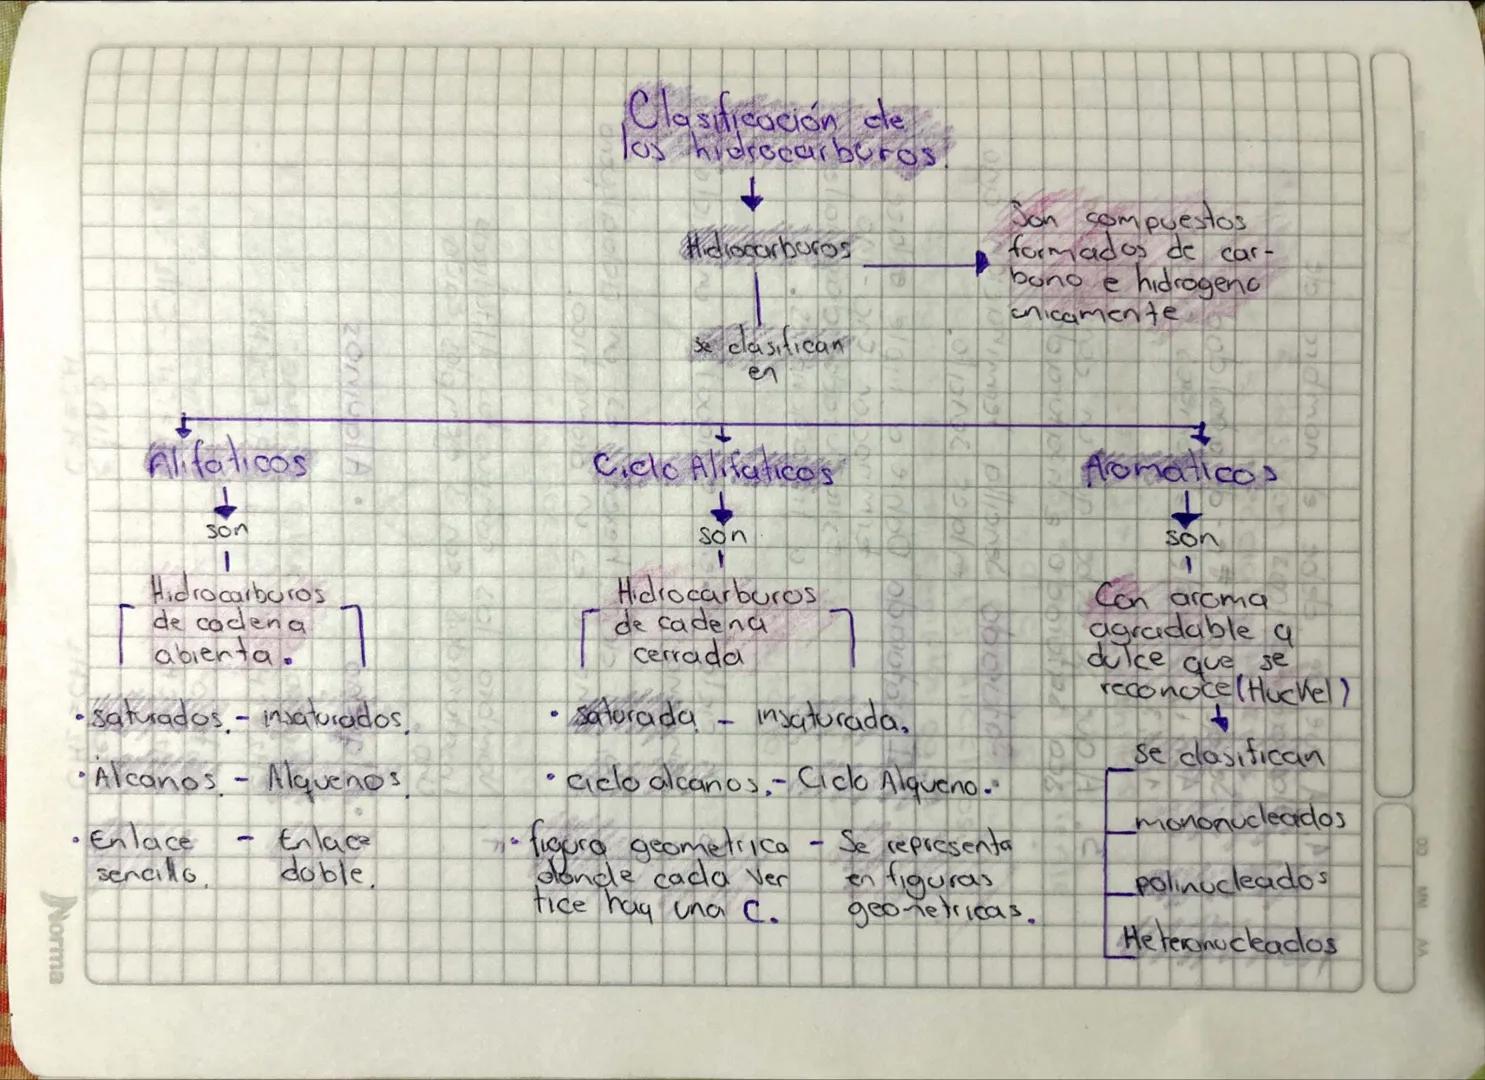 Clasificación de
los hidrocarburos
Hidrocarburos
Son compuestos
formados de car-
bono e hidrogeno
unicamente
se clasifican
en
Alifaticos
son
Hidrocarburos
de cadena
abierta.
• saturados. - insaturados.
• Alcanos. - Alquenos.
• Enlace - Enlace
sencillo. doble.
Ciclo Alifaticos
son
Hidrocarburos
de cadena
cerrada
• saturada - insaturada.
• ciclo alcanos. - Ciclo Alqueno.
• figura geometrica - Se representa
donde cada ver en figuras
tice hay una C. geometricas.
Aromaticos
son
Con aroma
agradable y
dulce que se
reconoce (Huckel)
se clasifican
mononucleados
polinucleados
Heteronucleados
Norma